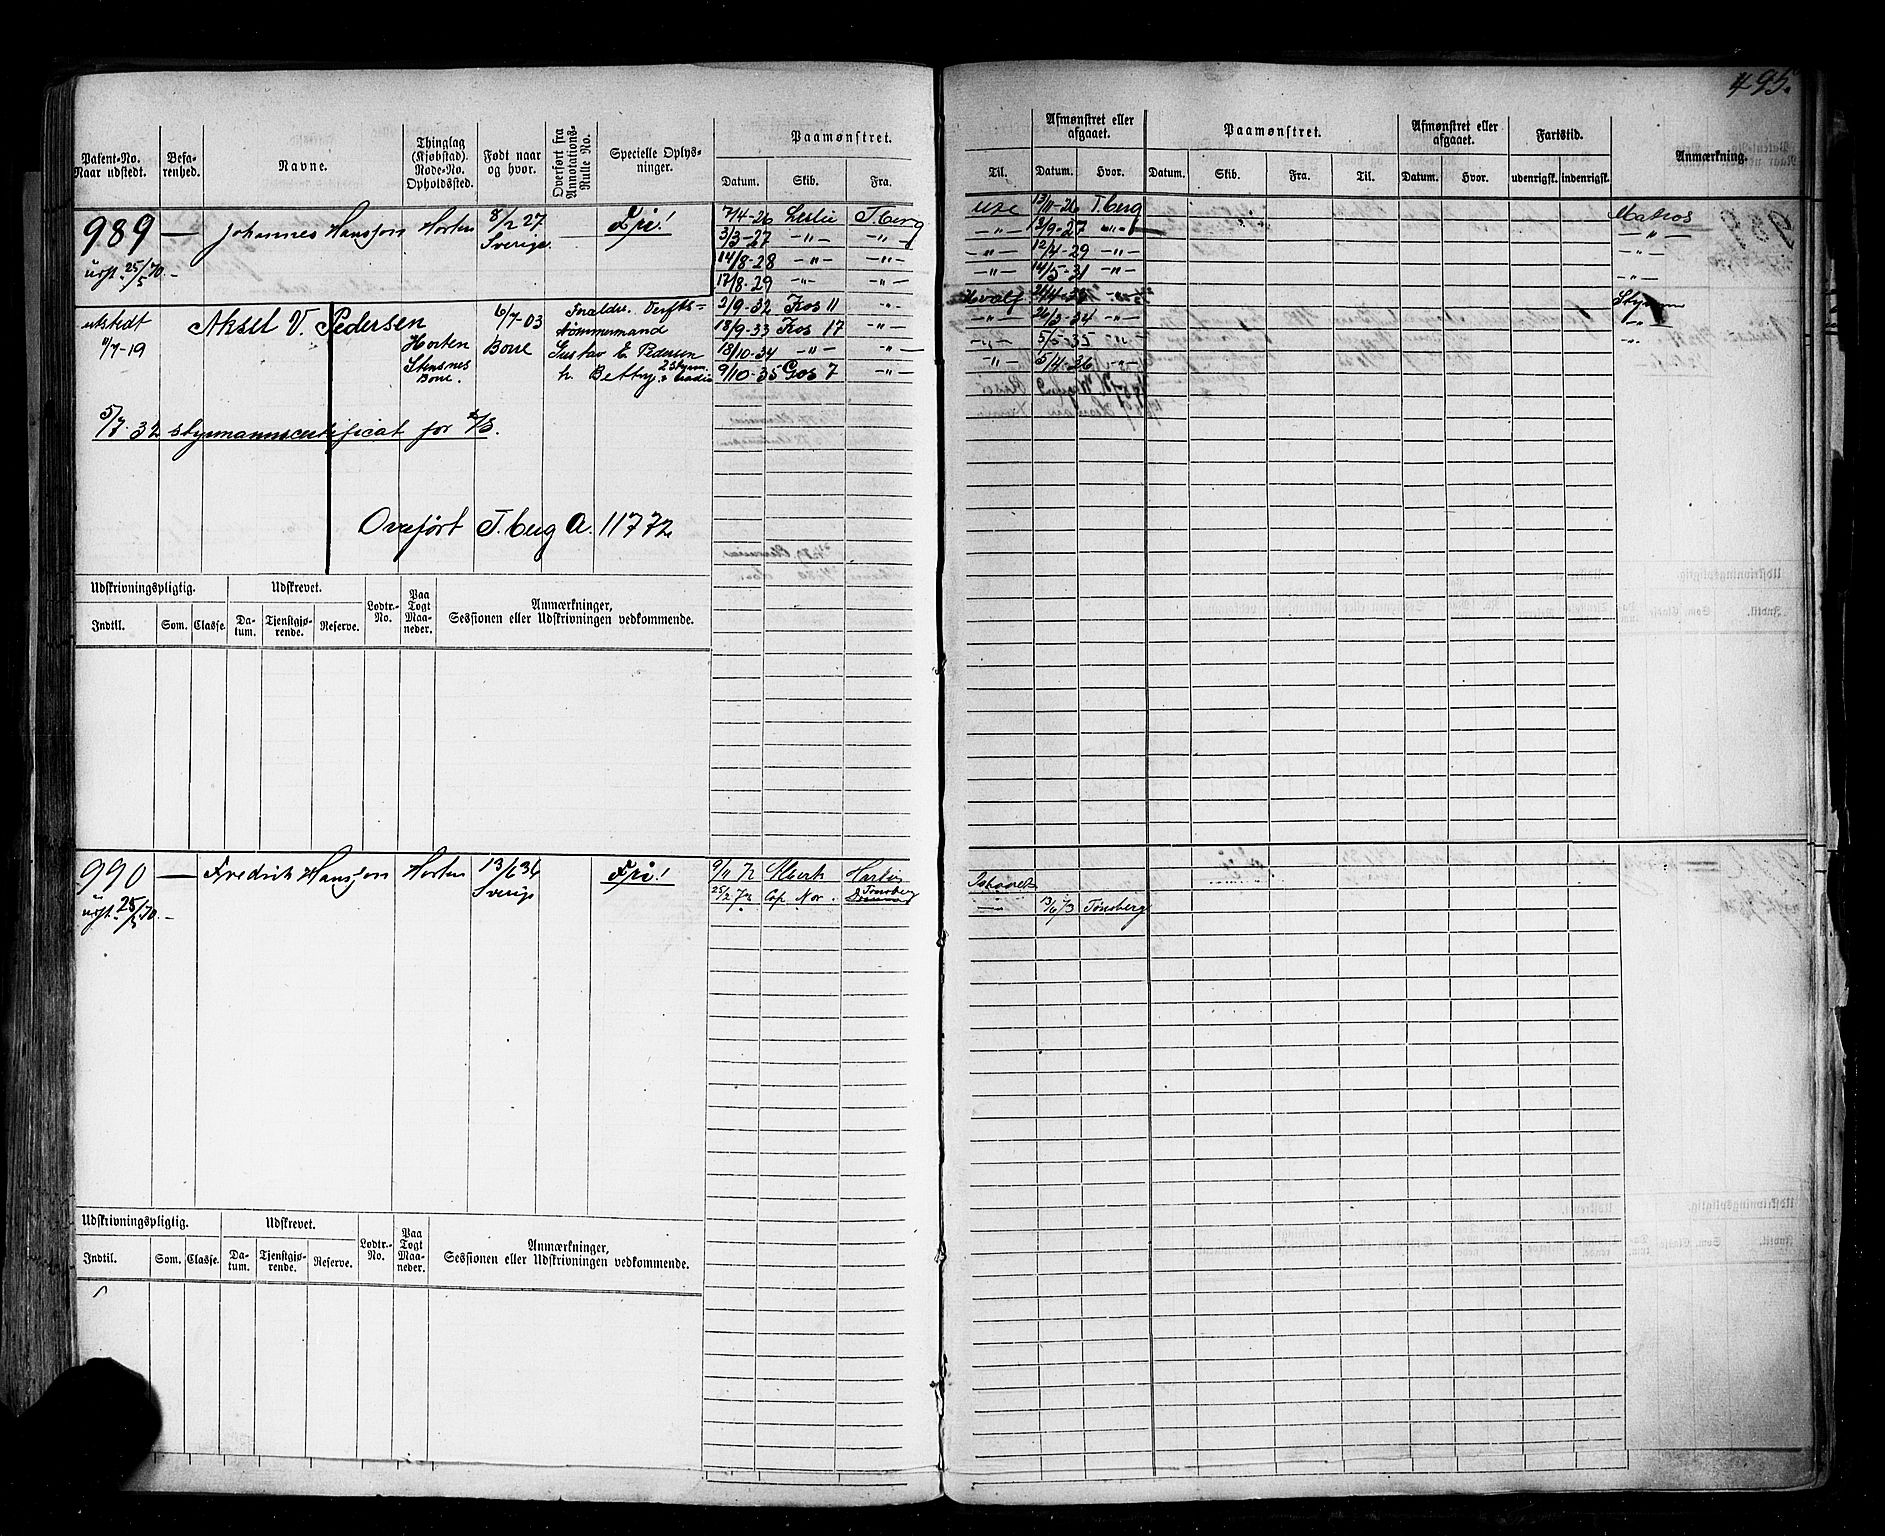 495.
Patent-No. Naar udstedt.
Befarenhed.
Navne.
Thinglag (Kjøbstad). Rode-No. Opholdssted.
Født naar og hvor.
Overført fra Annotations-Rulle No.
Specielle Oplysninger.
Paamønstret.
Datum. Skib. Fra.
Til.
Afmønstret eller afgaaet.
Datum. Hvor.
Paamønstret.
Datum. Skib. Fra. Til.
Afmønstret eller afgaaet.
Datum. Hvor.
Fartstid.
udenrigsk. indenrigsk.
Anmærkning.
989 — Johannes Hansson Horten 8/2 27 — Fri!
25/5 70. — Sverige
7/4-26 Leslie T.berg
13/11-26 T.berg Matros
3/3-27 —"— —"—
—"— 12/9-27 —"— —"—
14/8-28 —"— —"—
—"— 12/4-29 —"— —"—
17/8-29 —"— —"—
—"— 14/5-31 —"— —"—
utstedt Aksel V. Pedersen 6/7-03 Forældre. Verfts-
11/7-19 Horten Borre tømmermand
Stensnes Gustav E. Pedersen
Borre. h. Betty
2/9-32 Kos 11 —"—
Hvalf
18/9-33 Kos 17 —"—
26/3-34 —"— —"—
18/10-34 —"— —"—
—"— 5/5-35 —"— —"—
9/10-35 Gos 7 —"—
—"— 5/4-36 —"—
5/7. 32 styrmannscertificat for
Overført T.berg A. 11772
Udskrivningspligtig. Udskrevet. Lodtr.-No. Paa Togt Maaneder. Anmærkninger, Sessionen eller Udskrivningen vedkommende.
Indtil. Som. Classe. Datum. Tjenstgjørende. Reserve.
990 — Fredrik Hansson Horten 13/6 34 Fri!
25/5 70. — Sverige
9/11 72 Albert
25/2 73 Cap Nor. Tønsberg
Ishavet
—"— 13/6 73 Tønsberg
Udskrivningspligtig. Udskrevet. Lodtr.-No. Paa Togt Maaneder. Anmærkninger, Sessionen eller Udskrivningen vedkommende.
Indtil. Som. Classe. Datum. Tjenstgjørende. Reserve.